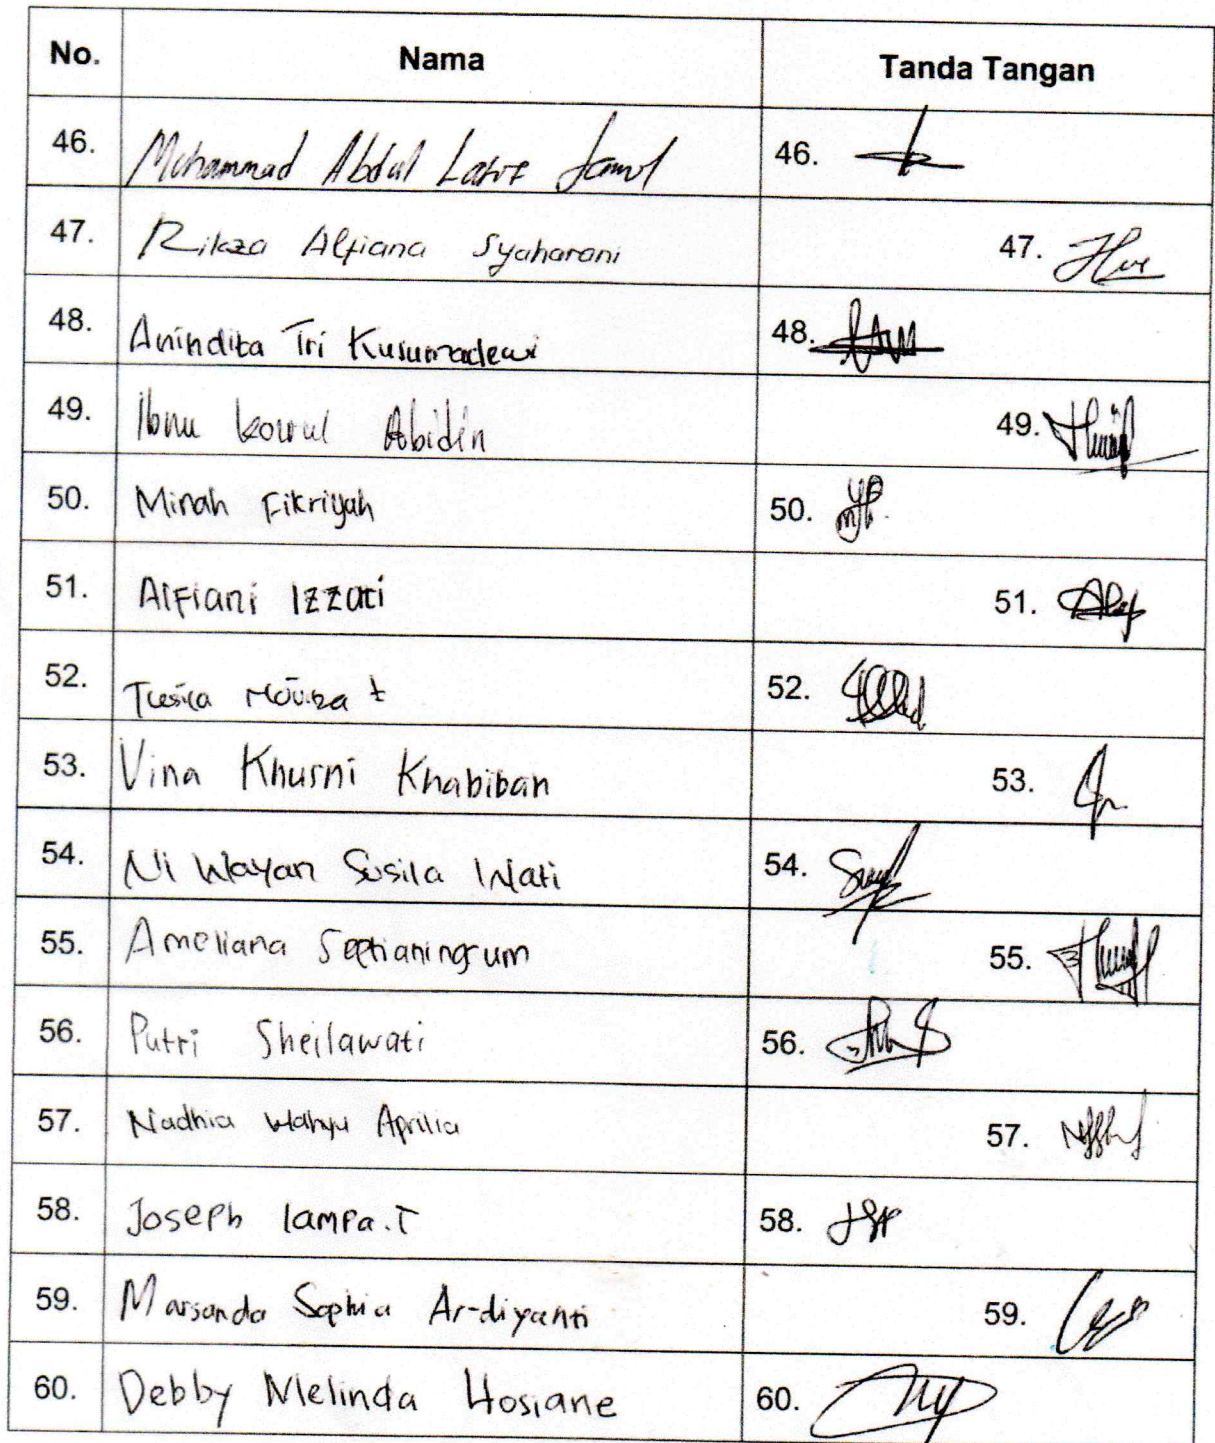 No. Nama Tanda Tangan
46. Muhammad Abdul 46.
47. Rikza Alfiana Syaharani 47.
48. Anindita Tri Kusumadewi 48.
49. Ibnu Abidin 49.
50. Minah Fikriyah 50.
51. Alfiani Izzati 51.
52. 52.
53. Vina Khusni Khabibah 53.
54. Ni Wayan Susila Wati 54.
55. Ameliana Septianingrum 55.
56. Putri Sheilawati 56.
57. Nadhia Wahyu Aprilia 57.
58. Joseph Lampa.T 58.
59. Marsanda Sophia Ar-diyanti 59.
60. Debby Melinda Hosiane 60.